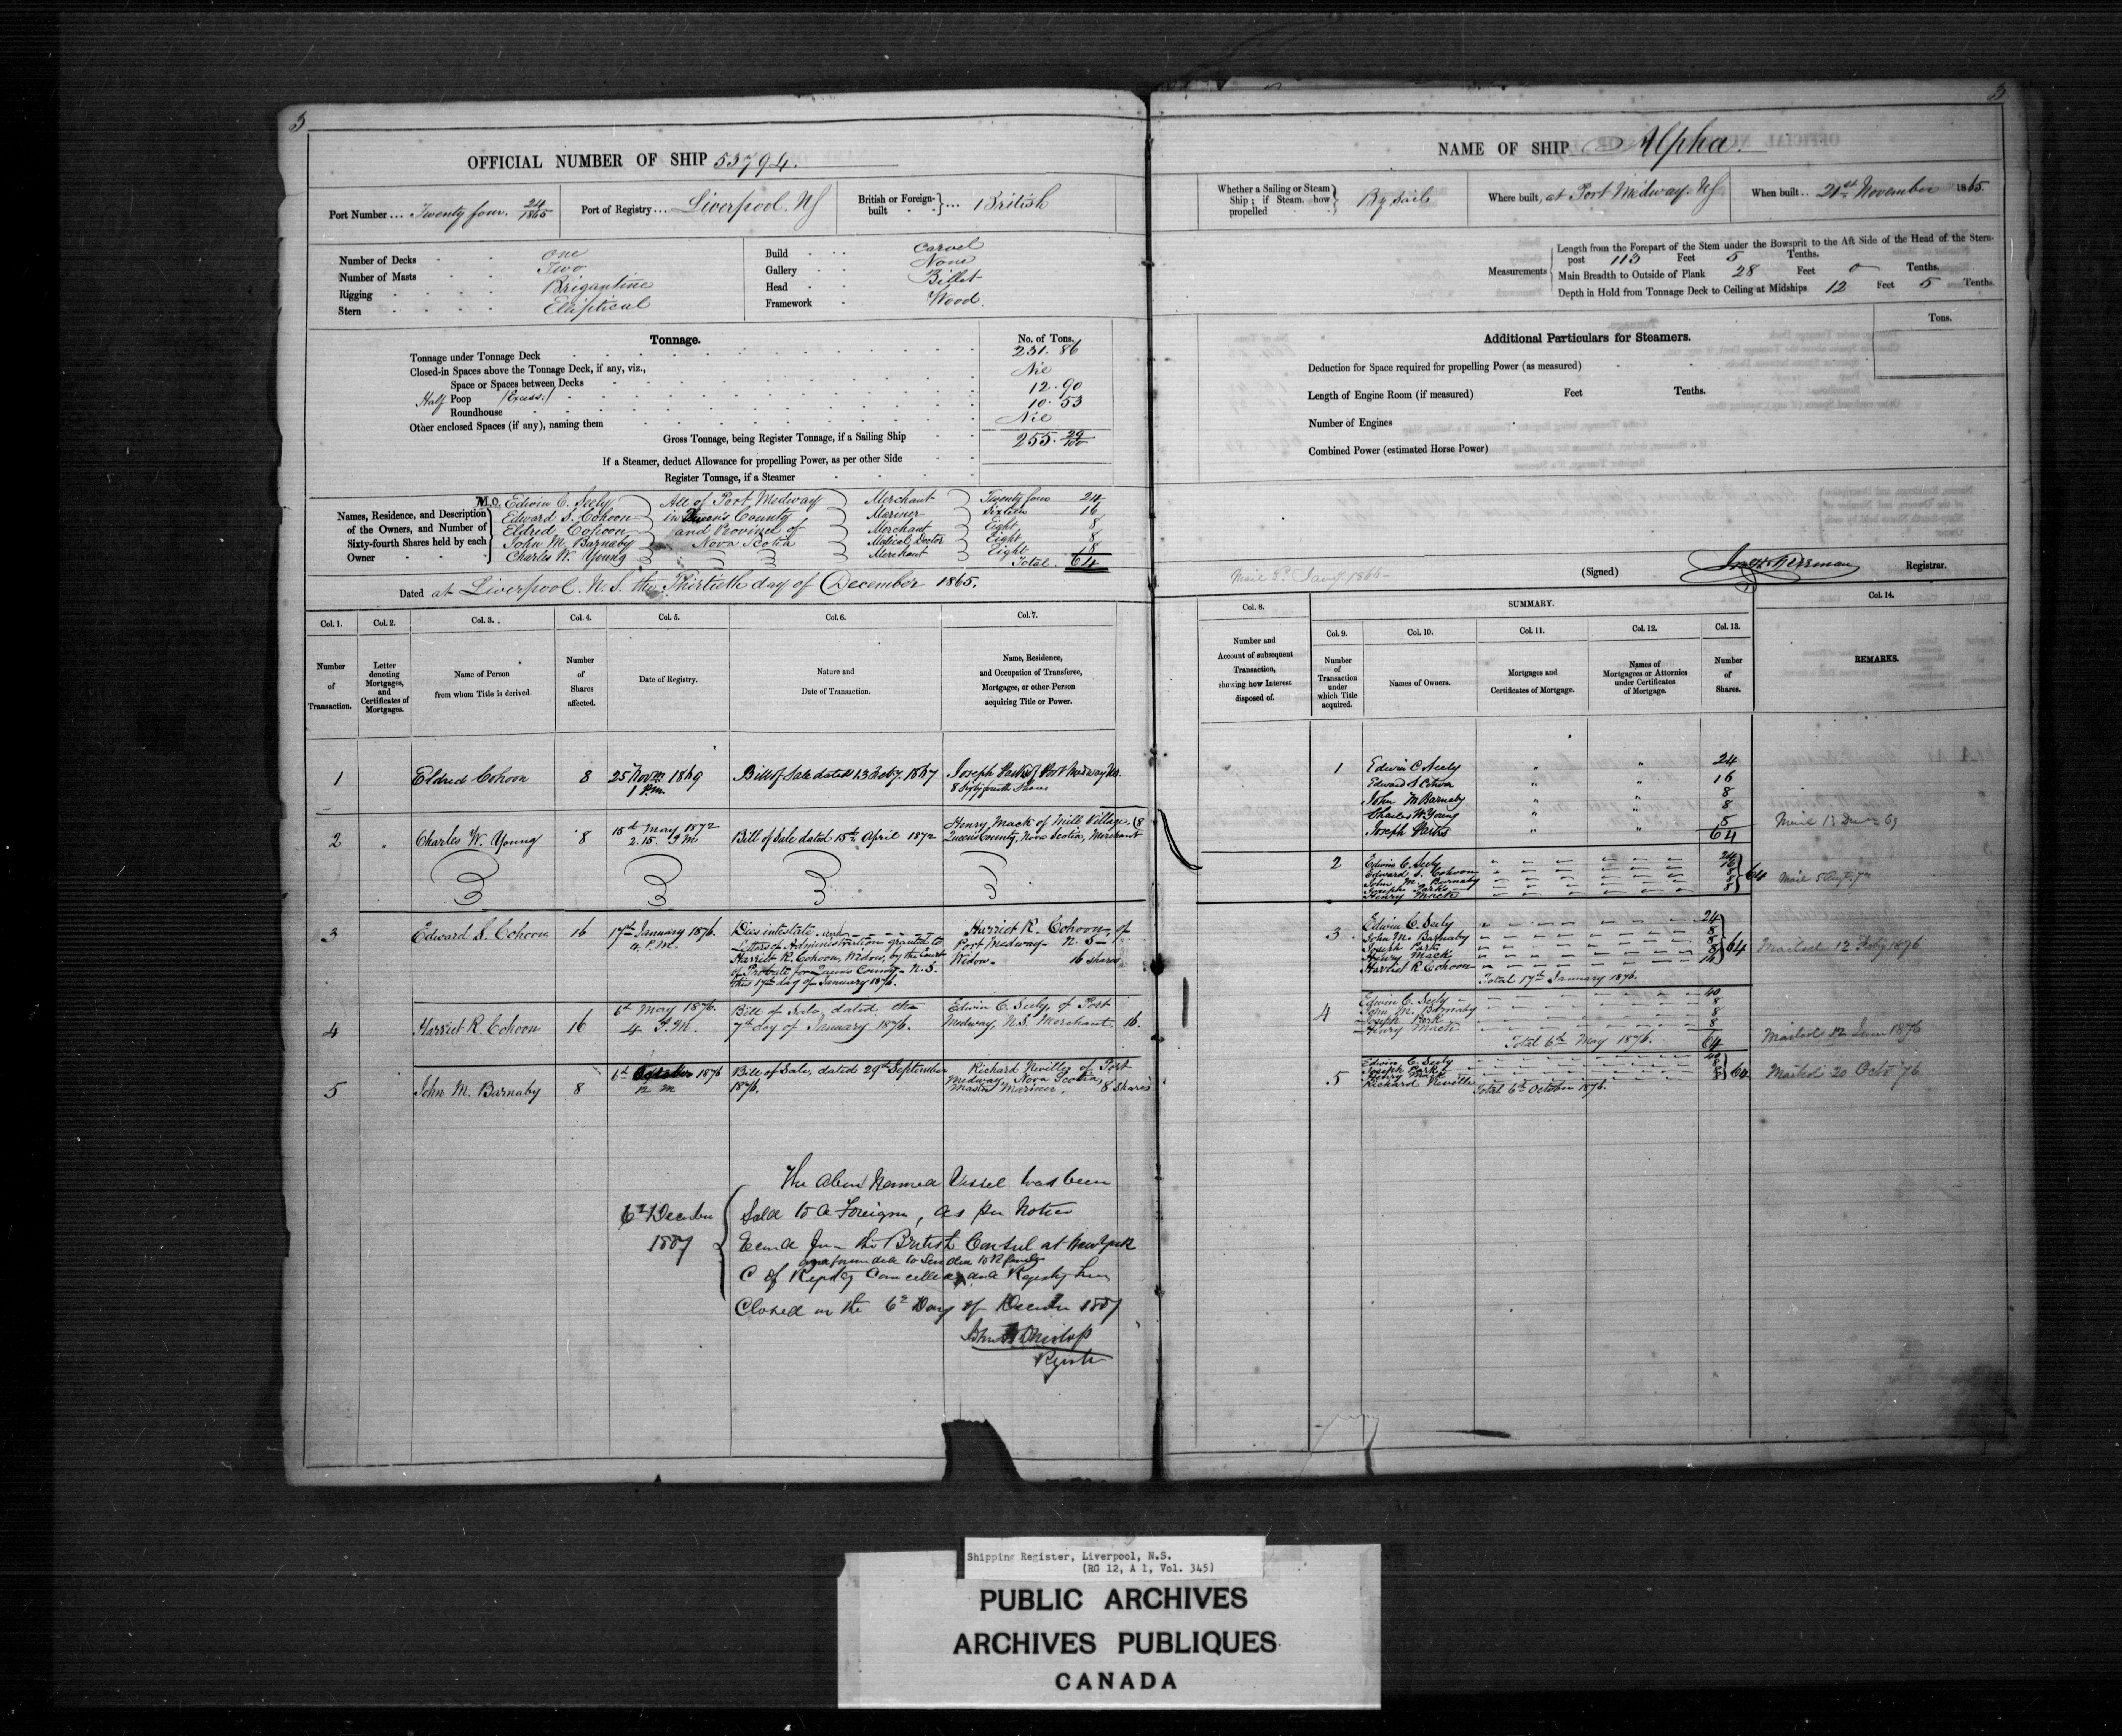 3
OFFICIAL NUMBER OF SHIP 53794.
Port Number ... Twenty four. 24/1865
Port of Registry ... Liverpool NS
British or Foreign-built } ... British
Number of Decks One
Number of Masts Two
Rigging Brigantine
Stern Elliptical
Build Carvel
Gallery None
Head Billet
Framework Wood.
Tonnage. No. of Tons.
Tonnage under Tonnage Deck 231. 86
Closed-in Spaces above the Tonnage Deck, if any, viz.,
Space or Spaces between Decks Nil
Half Poop (Excess.) 12. 90
Roundhouse 10. 53
Other enclosed Spaces (if any), naming them Nil
Gross Tonnage, being Register Tonnage, if a Sailing Ship 255. 29/100
If a Steamer, deduct Allowance for propelling Power, as per other Side
Register Tonnage, if a Steamer
Names, Residence, and Description of the Owners, and Number of Sixty-fourth Shares held by each Owner
M.O. Edwin C. Seely All of Port Medway Merchant Twenty four 24
Edward S. Cohoon in Queens County Mariner Sixteen 16
Eldred Cohoon and Province of Merchant Eight 8
John M. Barnaby Nova Scotia Medical Doctor Eight 8
Charles W. Young Merchant Eight 8
Total. 64
Dated at Liverpool. N. S. this Thirtieth day of December 1865.
Col. 1. Col. 2. Col. 3. Col. 4. Col. 5. Col. 6. Col. 7.
Number of Transaction.
Letter denoting Mortgages, and Certificates of Mortgages.
Name of Person from whom Title is derived.
Number of Shares affected.
Date of Registry.
Nature and Date of Transaction.
Name, Residence, and Occupation of Transferee, Mortgagee, or other Person acquiring Title or Power.
1 Eldred Cohoon 8 25 Novm 1869 1 P.m. Bill of Sale dated 13 Feby. 1867 Joseph Parks of Port Medway NS.
8 Sixty fourth Shares
2 Charles W. Young 8 15th May 1872 2.15. P M Bill of Sale dated 15th April 1872 Henry Mack of Mill Village (8
Queens County, Nova Scotia, Merchant
3 Edward S. Cohoon 16 17th January 1876. 4. P.M. Dies intestate and
Letters of Administration granted to
Harriet R. Cohoon, Widow, by the Court
of Probate for Queens County - N. S.
this 17th day of January 1876.
Harriet R. Cohoon, of
Port Medway - N. S -
Widow - 16 shares
4 Harriet R. Cohoon 16 6th May 1876. 4. P.M. Bill of Sale, dated the
7th day of January 1876.
Edwin C. Seely, of Port
Medway, N.S. Merchant. 16.
5 John M. Barnaby 8 6th October 1876 12 M Bill of Sale, dated 29th September
1876.
Richard Neville of Port
Medway, Nova Scotia,
Master Mariner. 8 Shares
6th December
1887
The above Named Vessel has been
Sold to a Foreigner, as per Notice
from the British Consul at New York
C of Registry Cancelled and Registry
Closed on the 6th Day of 1887
John
3
NAME OF SHIP Alpha.
Whether a Sailing or Steam Ship; if Steam, how propelled } By Sails
Where built, at Port Medway. NS
When built .. 21st November 1865.
Measurements
Length from the Forepart of the Stem under the Bowsprit to the Aft Side of the Head of the Stern-
post 113 Feet 5 Tenths.
Main Breadth to Outside of Plank 28 Feet 0 Tenths.
Depth in Hold from Tonnage Deck to Ceiling at Midships 12 Feet 5 Tenths.
Additional Particulars for Steamers. Tons.
Deduction for Space required for propelling Power (as measured)
Length of Engine Room (if measured) Feet Tenths.
Number of Engines
Combined Power (estimated Horse Power)
(Signed) Registrar.
Col. 8. SUMMARY. Col. 14.
Col. 9. Col. 10. Col. 11. Col. 12. Col. 13.
Number and Account of subsequent Transaction, showing how Interest disposed of.
Number of Transaction under which Title acquired.
Names of Owners.
Mortgages and Certificates of Mortgage.
Names of Mortgagees or Attornies under Certificates of Mortgage.
Number of Shares.
REMARKS.
1 Edwin C Seely " " 24
Edward S Cohoon " " 16
John M Barnaby " " 8
Charles W Young " " 8
Joseph Parks " " 8
64
2 Edwin C. Seely 24
Edward S. Cohoon 16
John M. Barnaby 8
Joseph Parks 8
Henry Mack 8
64
3 Edwin C. Seely 24
John M. Barnaby 8
Joseph Parks 8
Henry Mack 8
Harriet R Cohoon 16
64 Mailed 12 Feby 1876
Total 17th January 1876.
4 Edwin C. Seely 40
John M. Barnaby 8
Joseph Park 8
Henry Mack 8
Total 6th May 1876. 64 Mailed 12 June 1876
5 Edwin C. Seely 40
Joseph Parks 8
Henry Mack 8
Richard Neville 8
64 Mailed 20 Octr 76
Total 6th October 1876.
Shipping Register, Liverpool, N.S.
(RG 12, A 1, Vol. 345)
PUBLIC ARCHIVES
ARCHIVES PUBLIQUES
CANADA